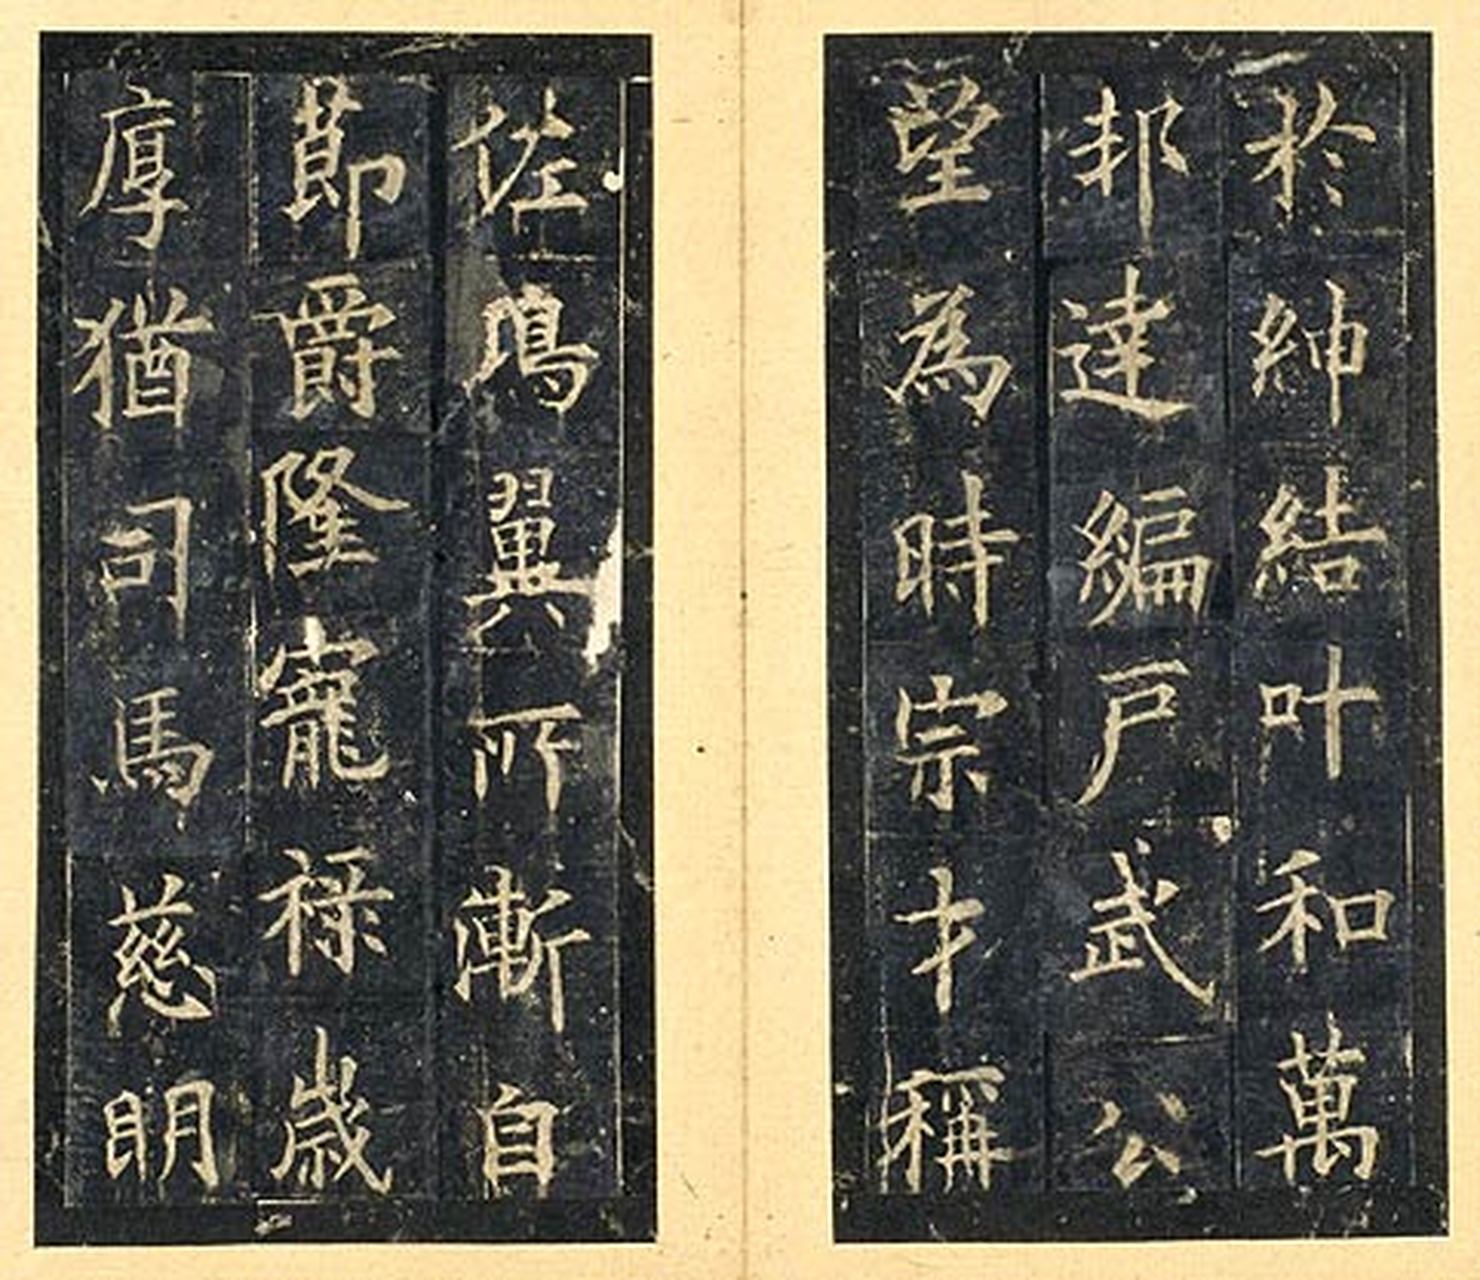 於紳結叶和萬
邦達編戶武公
望為時宗才稱
佐鴻翼所漸自
莭爵隆寵祿歲
厚猶司馬慈明